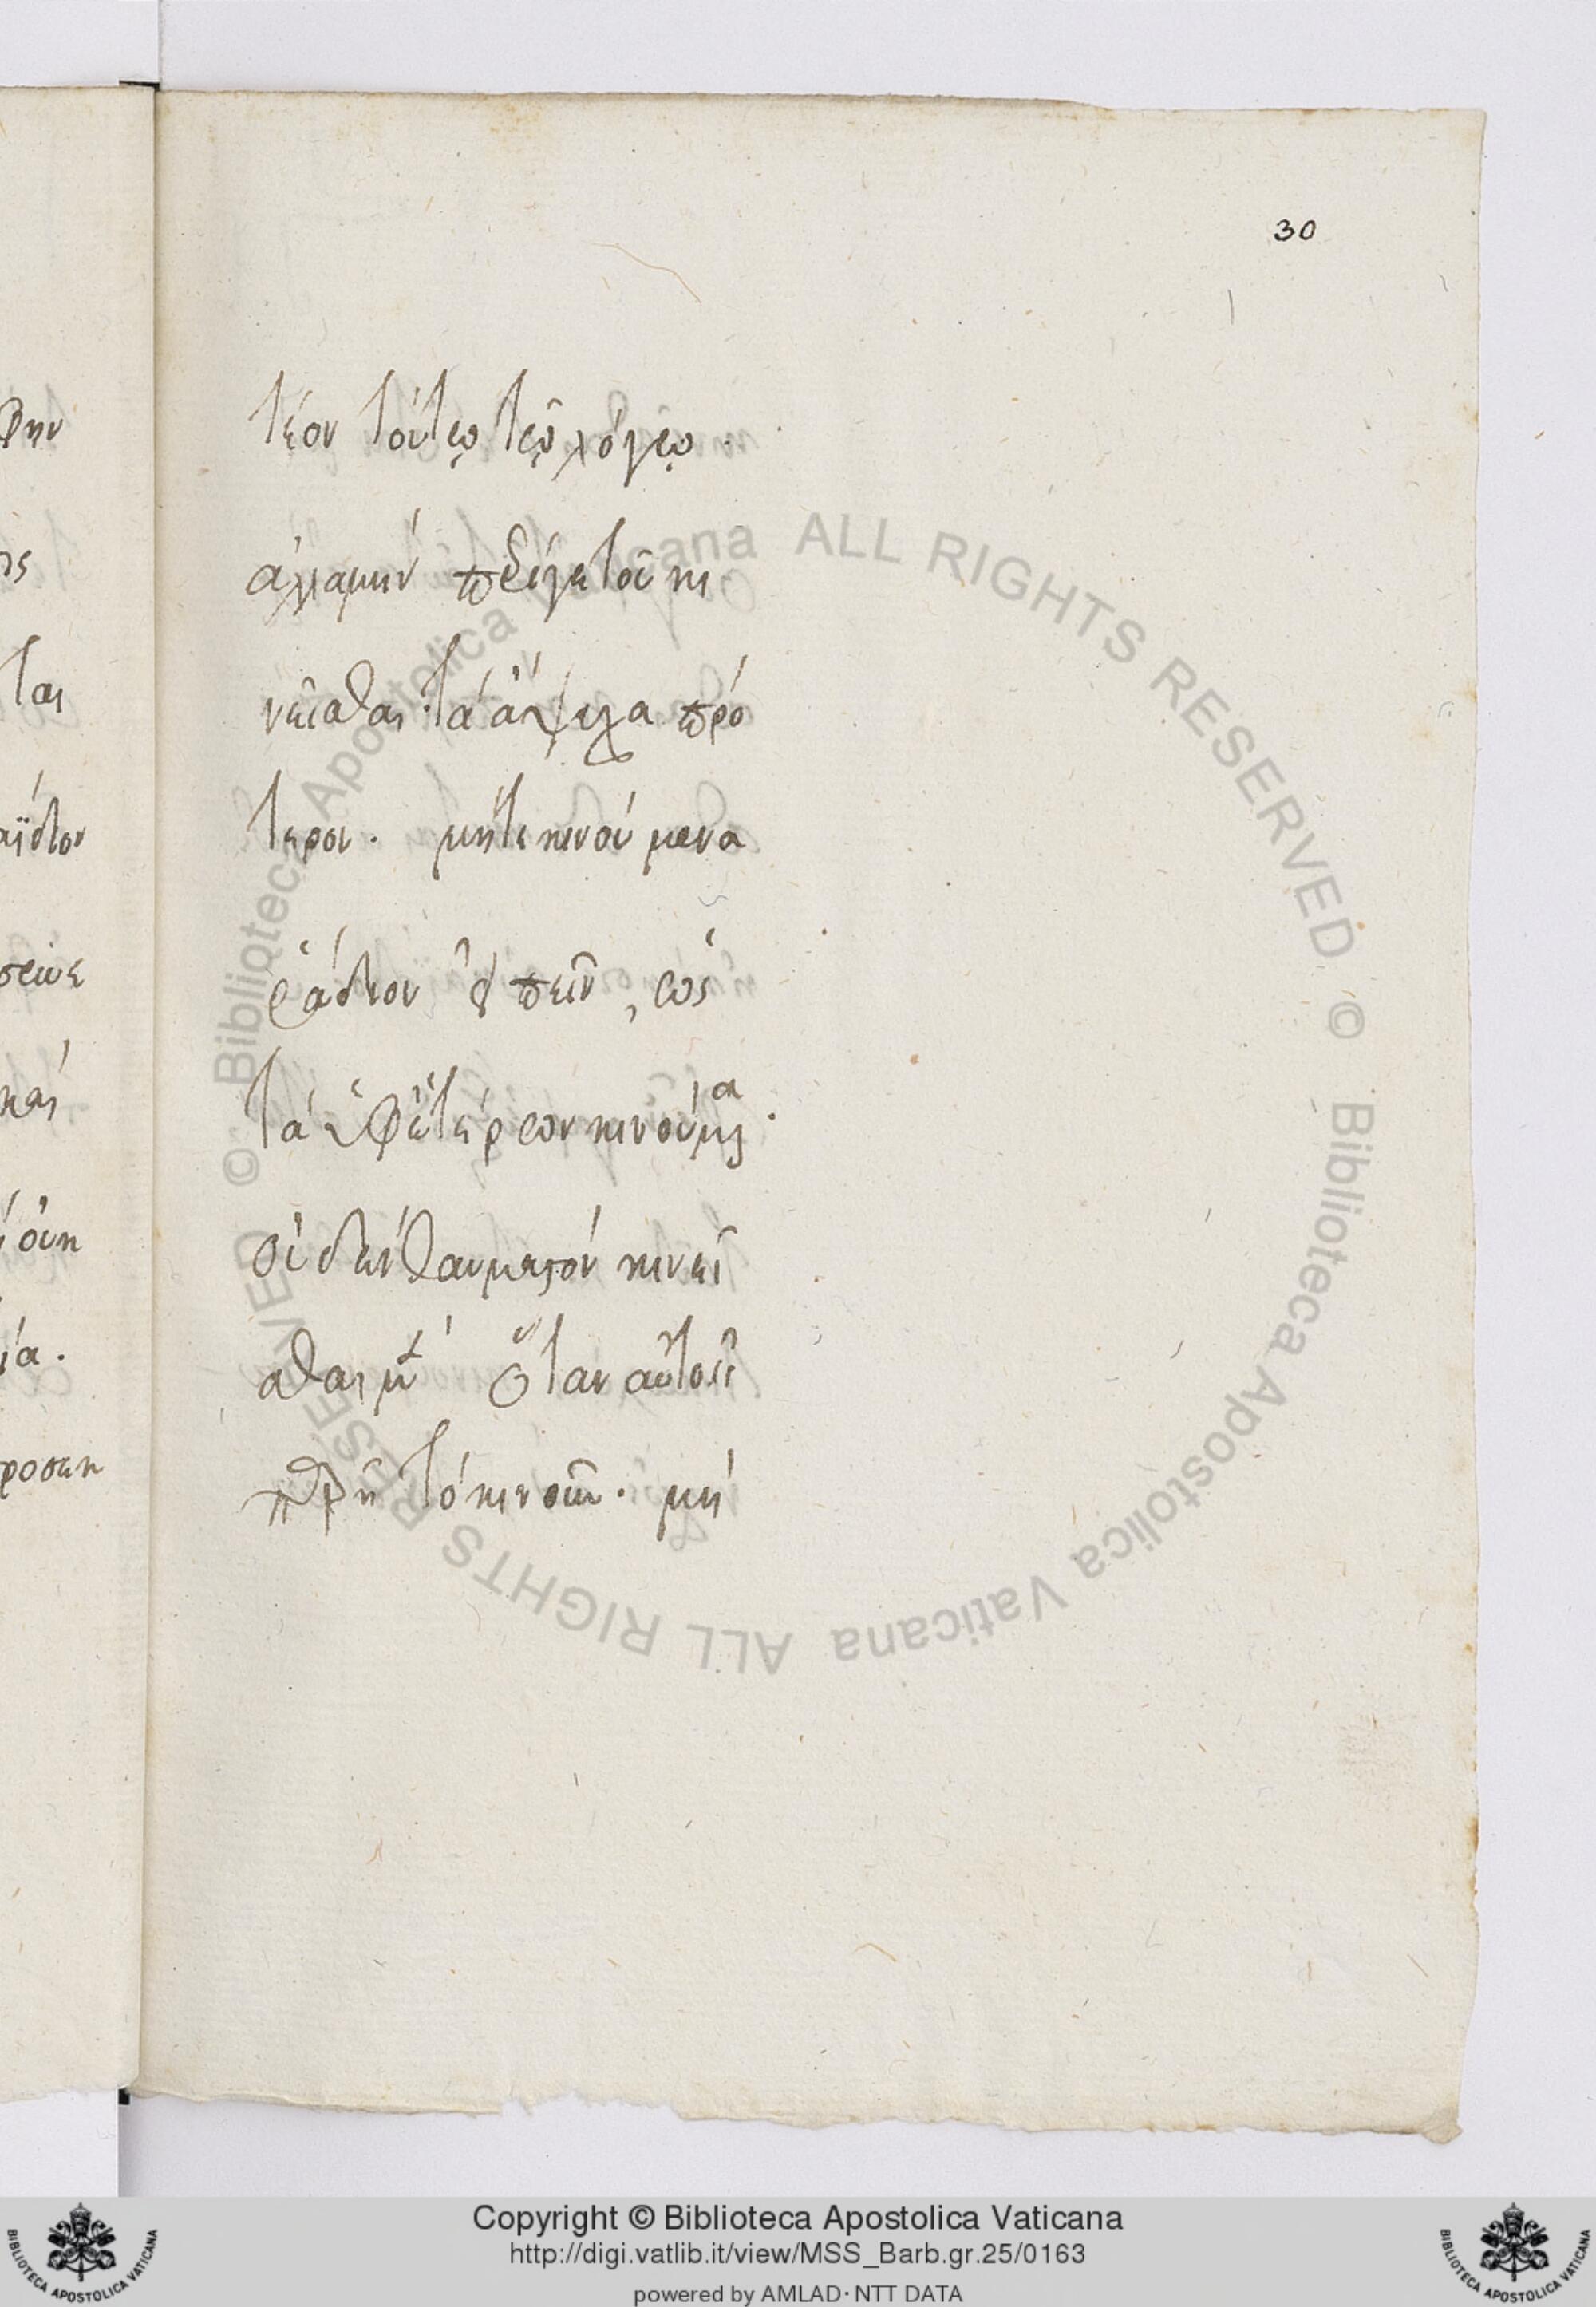 30
τέον τούτῳ τῷ λόγῳ.
ἀλλαμήν περίγε τοῦ κι
νεῖσθαι. τὰ ἄψυχα πρό
τερον. μήτε κινούμενα
ῥάδιον εἰπεῖν, ὡς
τὰ ὑφ' ἑτέρων κινούμενα.
οὐδὲν θαυμαστόν κινεῖ
σθαι μὲν ὅταν αὐτοῖς
παρῇ τὸ κινοῦν. μή
φην
τας
αΐδιον
σεως
καὶ
οὐκ
ία.
προσεκ
© Biblioteca Apostolica Vaticana ALL RIGHTS RESERVED © Biblioteca Apostolica Vaticana ALL RIGHTS RESERVED
Copyright © Biblioteca Apostolica Vaticana
http://digi.vatlib.it/view/MSS_Barb.gr.25/0163
powered by AMLAD·NTT DATA
BIBLIOTECA APOSTOLICA VATICANA
BIBLIOTECA APOSTOLICA VATICANA